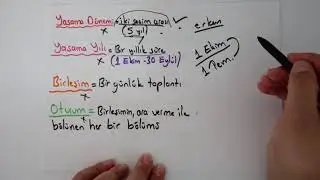 Yasama Dönemi = iki seçim arası ✓ erken
5 yıl
Yasama Yılı = Bir yıllık süre 1 Ekim
(1 Ekim - 30 Eylül) 1 Tem.
Birleşim = Bir günlük toplantı
x
Oturum = Birleşimin, ara verme ile
x
bölünen her bir bölümü